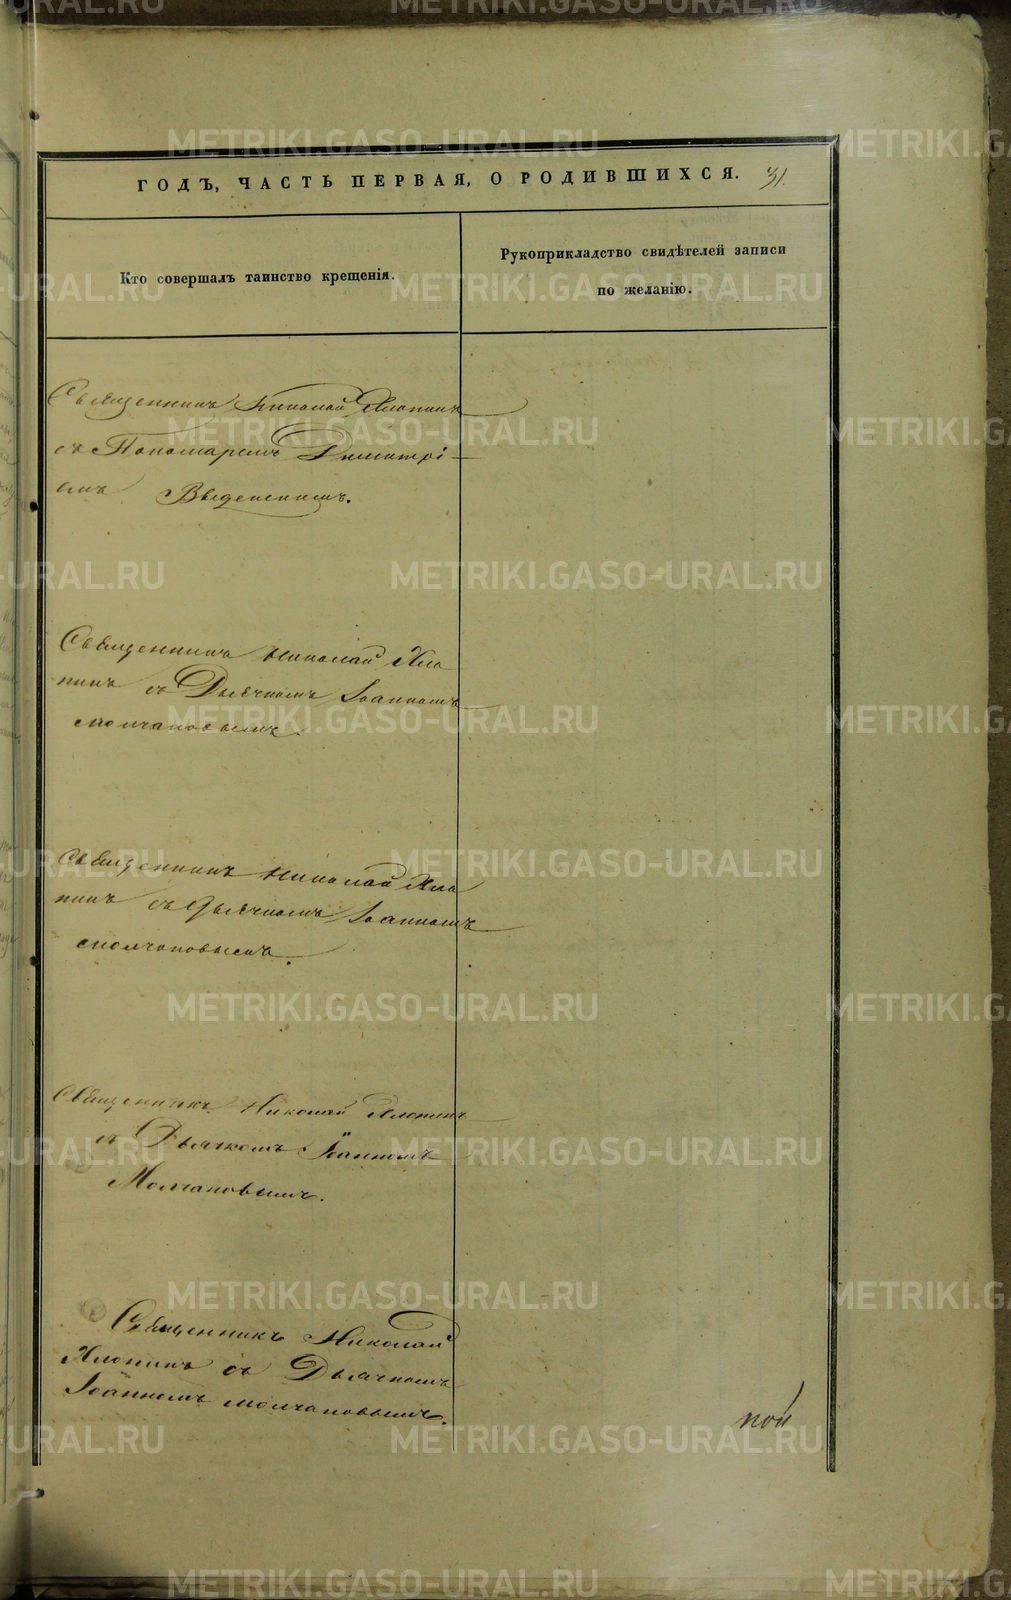 ГОДЪ, ЧАСТЬ ПЕРВАЯ, О РОДИВШИХСЯ. 31.
Кто совершалъ таинство крещенія.
Рукоприкладство свидѣтелей записи
по желанію.
Священникъ Николай Хлопинъ
съ Пономаремъ Димитрі-
емъ Введенскимъ.
Священникъ Николай Хло
пинъ съ Дьячкомъ Іоанномъ
Молчановымъ.
Священникъ Николай Хло
пинъ съ Дьячкомъ Іоанномъ
Молчановымъ.
Священникъ Николай Хлопинъ
съ Дьячкомъ Іоанномъ
Молчановымъ.
Священникъ Николай
Хлопинъ съ Дьячкомъ
Іоанномъ Молчановымъ.
METRIKI.GASO-URAL.RU